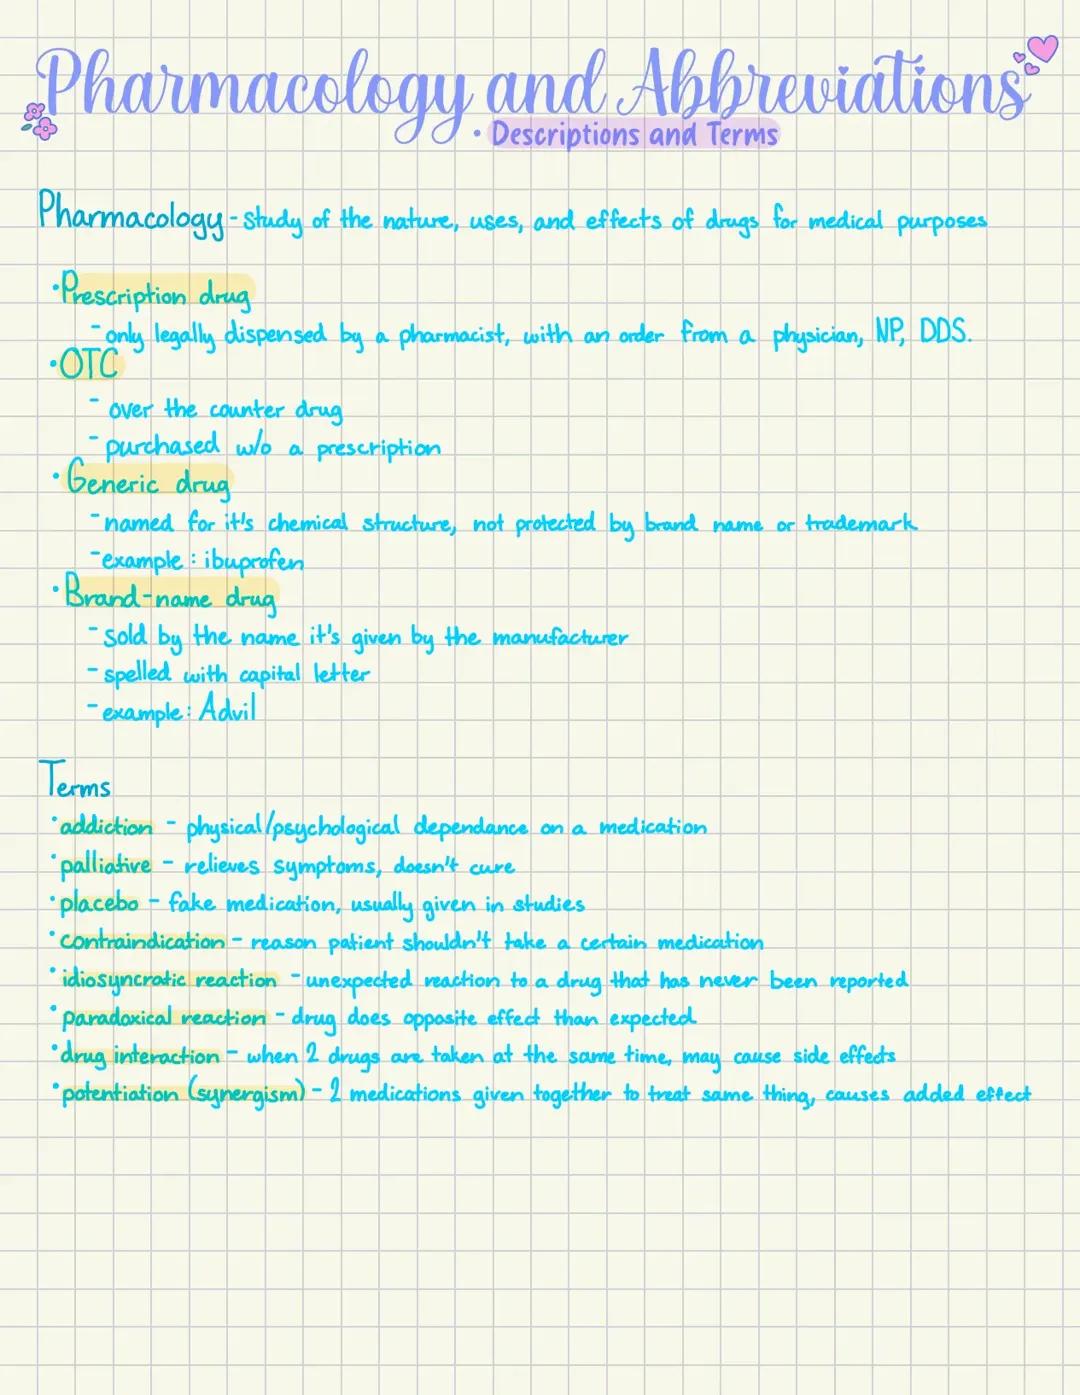 Pharmacology and Abbreviations
• Descriptions and Terms
Pharmacology - study of the nature, uses, and effects of drugs for medical purposes
• Prescription drug
- only legally dispensed by a pharmacist, with an order from a physician, NP, DDS.
• OTC
- over the counter drug
- purchased w/o a prescription
• Generic drug
- named for it's chemical structure, not protected by brand name or trademark
- example: ibuprofen
• Brand-name drug
- sold by the name it's given by the manufacturer
- spelled with capital letter
- example: Advil
Terms
• addiction - physical/psychological dependance on a medication
• palliative - relieves symptoms, doesn't cure
• placebo - fake medication, usually given in studies
• contraindication - reason patient shouldn't take a certain medication
• idiosyncratic reaction - unexpected reaction to a drug that has never been reported
• paradoxical reaction - drug does opposite effect than expected
• drug interaction - when 2 drugs are taken at the same time, may cause side effects
• potentiation (synergism) - 2 medications given together to treat same thing, causes added effect